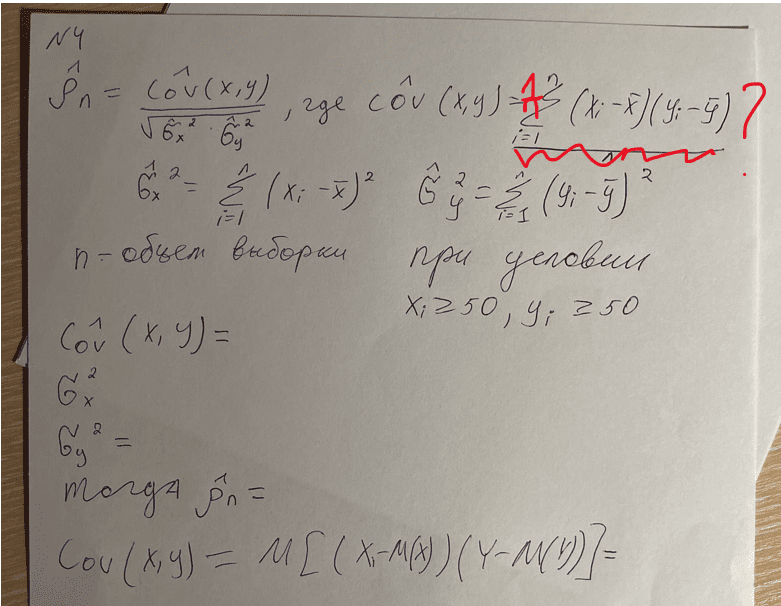 N4
ρ̂n = côv(x,y) / √(σ̂x² · σ̂y²), где côv (x,y) = Σ(i=1..n) (xi - x̄)(yi - ȳ) / n ?
σ̂x² = Σ(i=1..n) (xi - x̄)² σ̂y² = Σ(i=1..n) (yi - ȳ)²
n - объем выборки при условии
xi ≥ 50, yi ≥ 50
côv (x, y) =
σx²
σy² =
тогда ρ̂n =
Cov (x,y) = M[(X-M(x))(Y-M(Y))] =